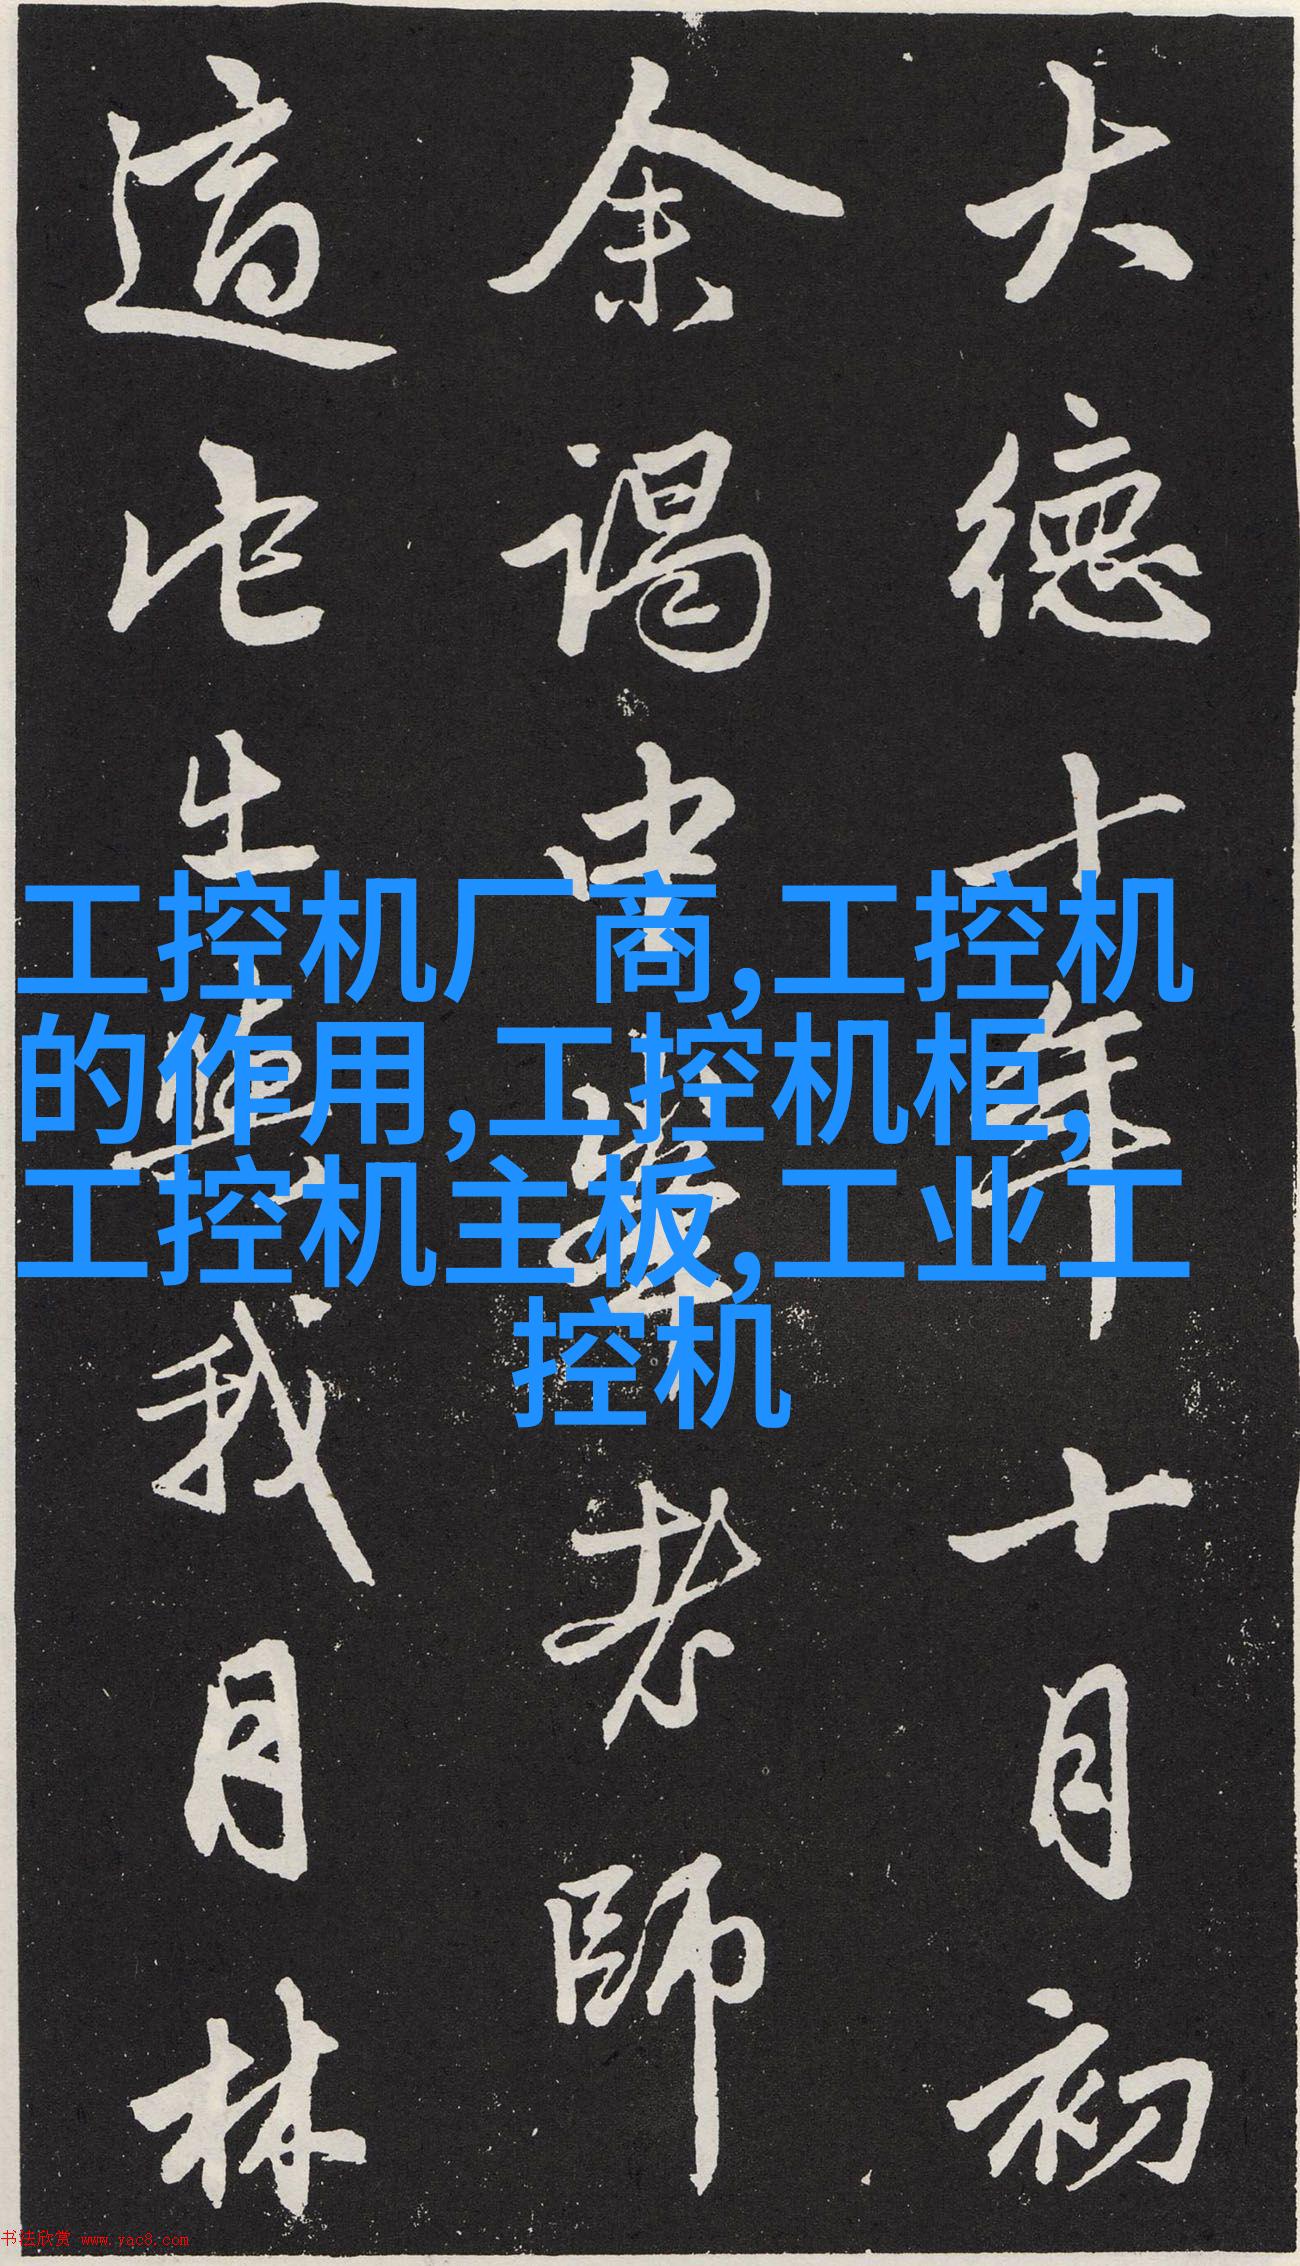 大德十年十月初
余謁中峯老師
適出我月林
工控机厂商,工控机
的作用,工控机柜,
工控机主板,工业工
控机
书法欣赏 www.yac8.com